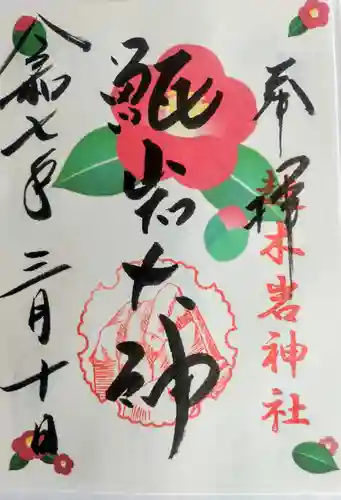 奉拝
越木岩神社
甑岩大神
令和七年 三月十日